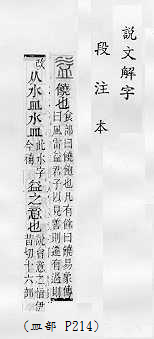 說文解字
段注本
益饒也食部曰饒飽也凡有餘曰饒易象傳曰風雷益君子以見善則遷有過則
改从水皿水皿此水字今補益之意也說會意之恉伊昔切十六部
(皿部 P214)